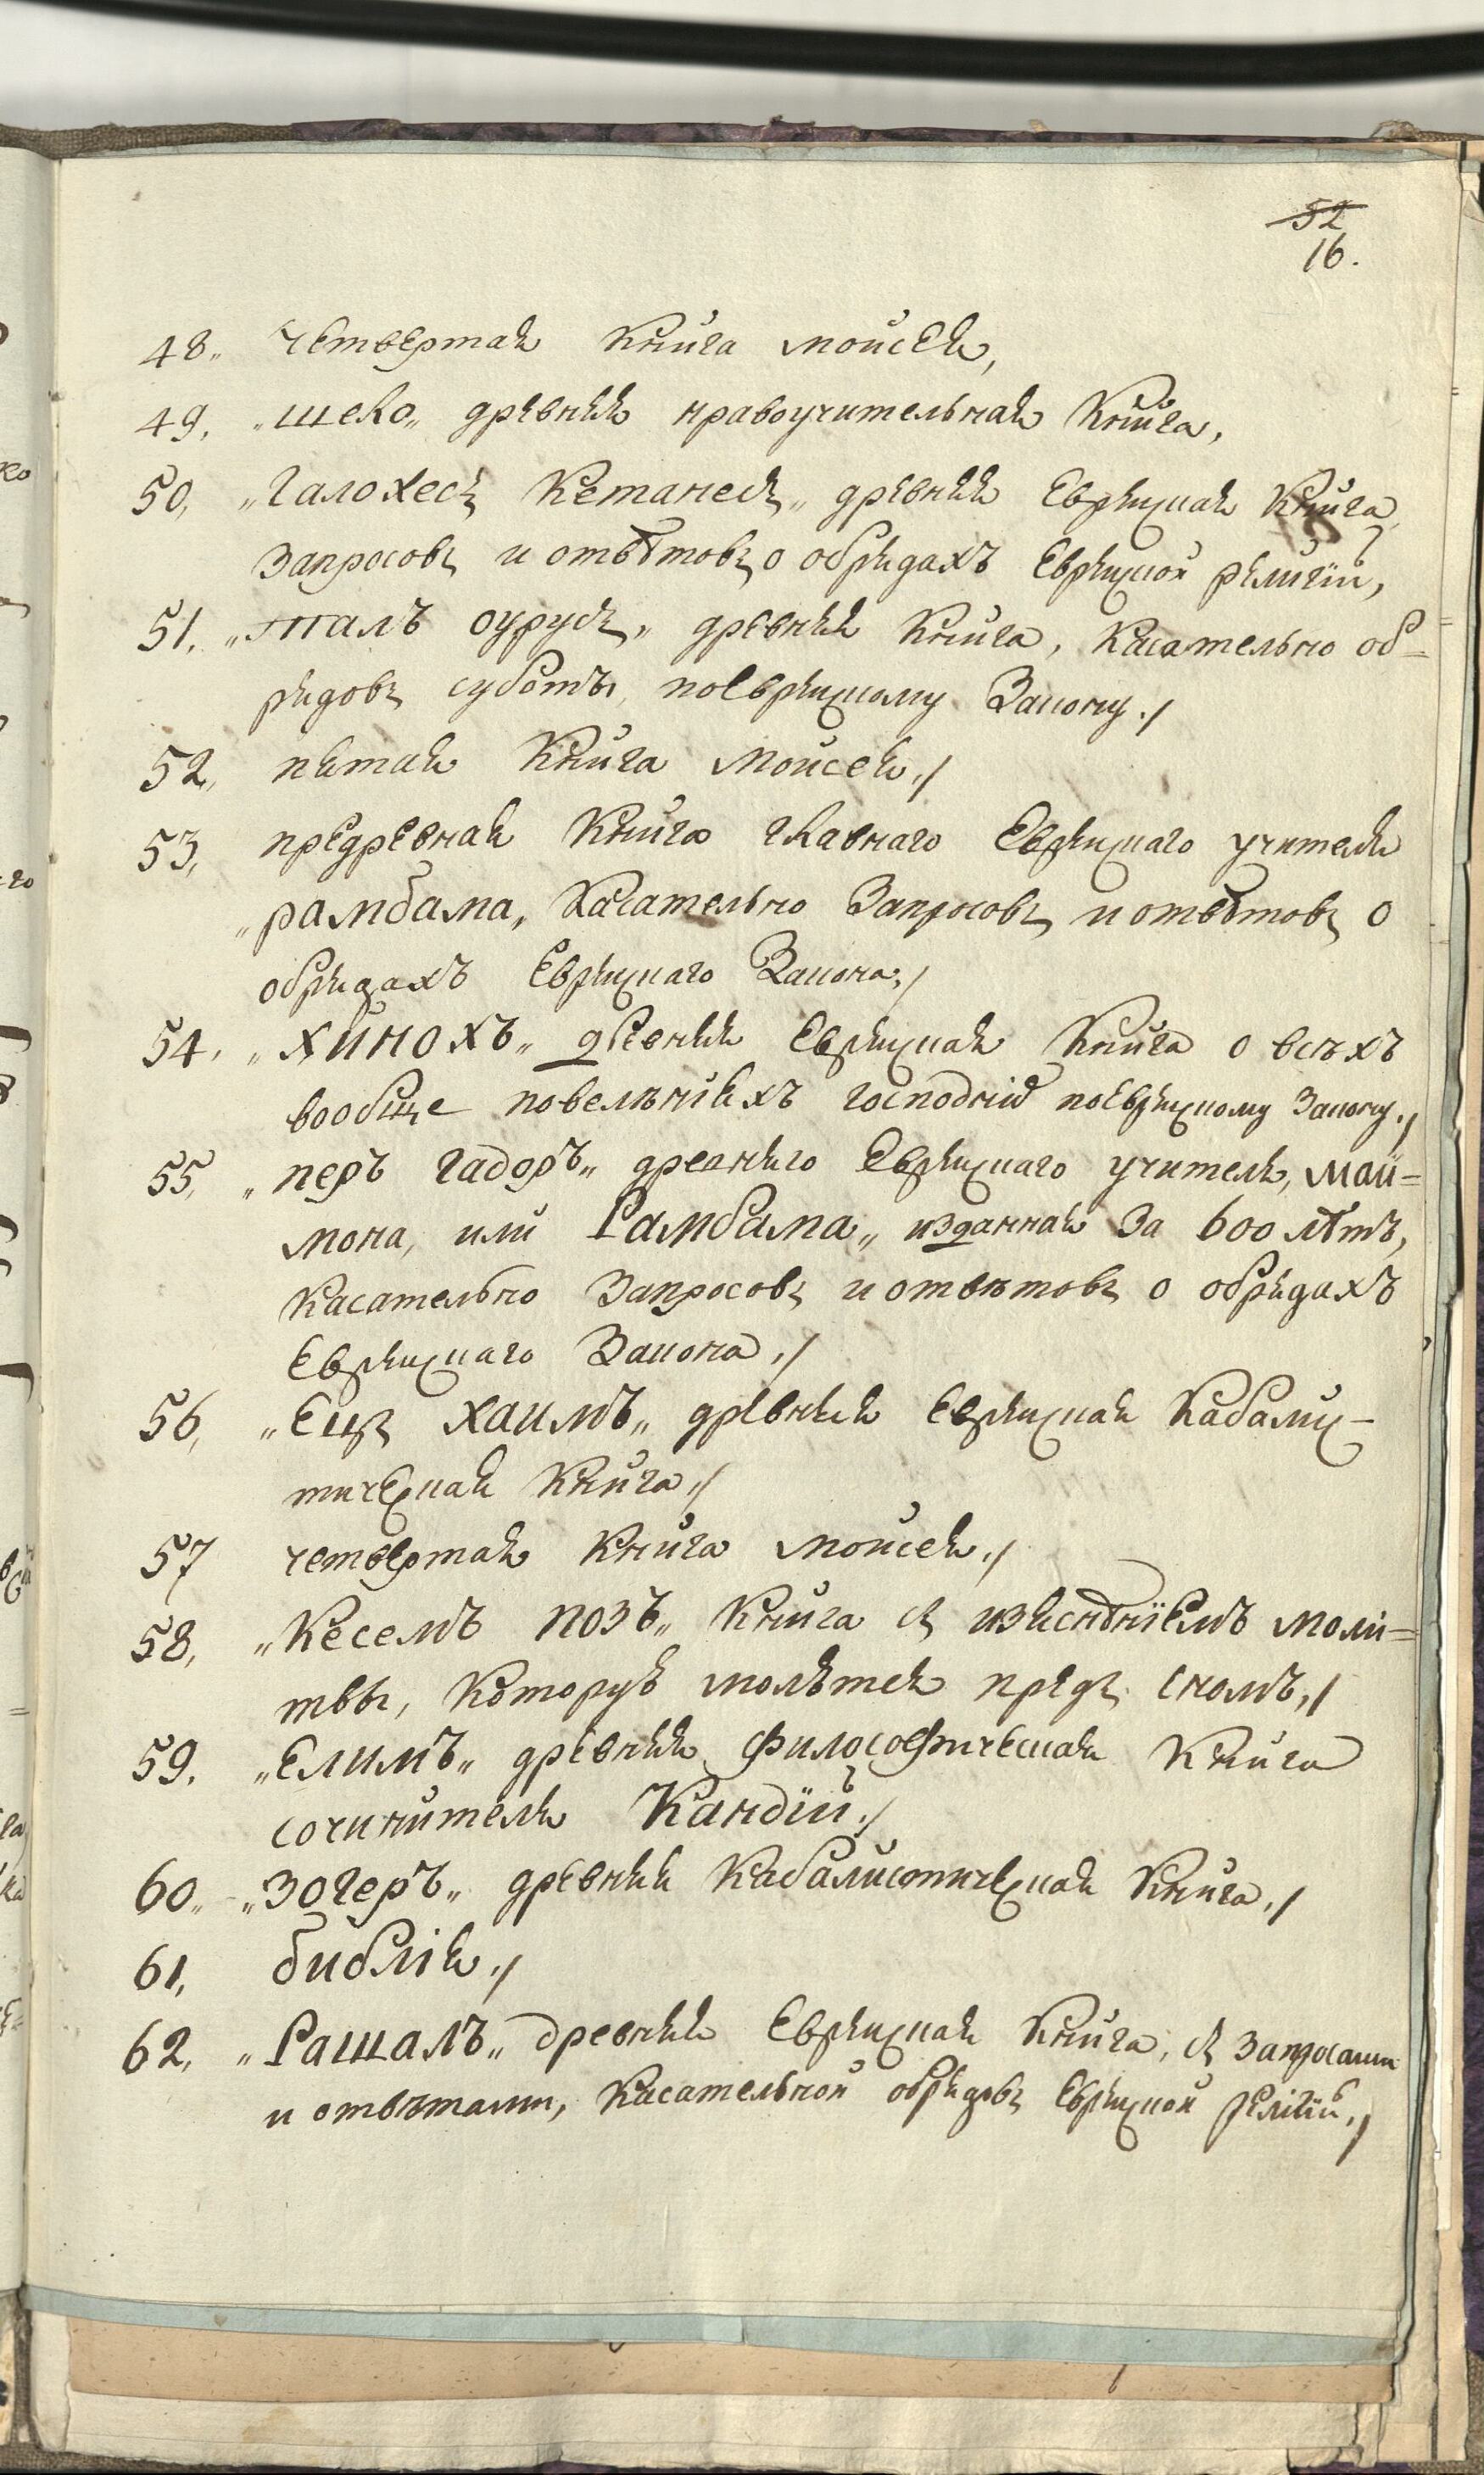 52
16.
48„ четвертая Книга моисея,
49, „шело„ древняя нравоучительная Книга,
50, „галохесъ Кетанесъ„ древняя Еврейская Книга
запросовъ и отвѣтовъ о обрядахъ Еврейской религiи,
51, „талъ оурусъ„ древняя Книга, Касательно об=
рядовъ суботы, поеврейскому Закону./
52, пятая Книга Моисея./
53, предревная Книга главнаго Еврейскаго учителя
„рамбама, Касательно Запросовъ и отвѣтовъ о
обрядахъ Еврейскаго Закона,/
54, „Хинохъ„ древняя Еврейская Книга о всѣхъ
вообще повелѣнiяхъ господнiй поеврейскому Закону./
55, „перъ гадоръ„ древняго Еврейскаго учителя, май=
мона, или Рамбама„ изданная За 600 лѣтъ,
Касательно Запросовъ и отвѣтовъ о обрядахъ
Еврейскаго Закона./
56, „Ецъ Хаимъ„ древняя Еврейская Кабалис-
тическая Книга./
57 четвертая Книга моисея./
58, „Кеселъ позъ„ Книга съ изъяснѣнiемъ моли=
твы, Которуѣ молятся предъ сномъ,/
59, „Елимъ„ древняя Философическая Книга
сочинителя Кандiи./
60„ „Зогеръ„ древняя Кабалистическая Книга./
61, библiя./
62, „Рашалъ„ древняя Еврейская Книга, съ Запросами
и отвѣтами, Касательной обрядовъ Еврейской релiгiи./